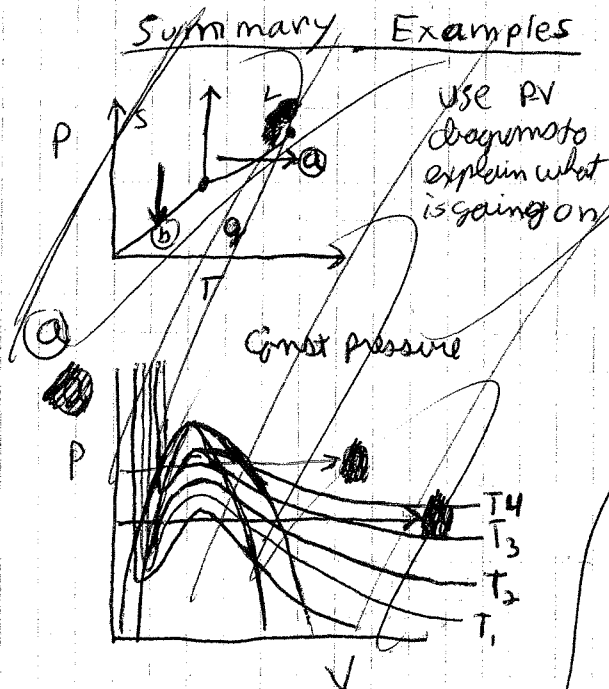 Summary Examples
P
S
L
a
b
g
T
use PV
diagrams to
explain what
is going on
a
Const pressure
P
T4
T3
T2
T1
V